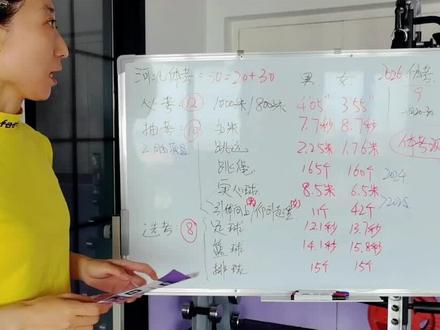 河北体考 = 50 = 20+30 男 女 2026体考
必考 12 1000米/800米 4'05" 3'55" 9
抽考 10 50米 7.7秒 8.7秒
跳远 2.25米 1.76米 体考项
跳绳 165个 160个 2024
实心球 8.5米 6.5米
引体向上/仰卧起坐 11个 42个 2025
选考 8 足球 12.1秒 13.7秒
篮球 14.1秒 15.8秒
排球 15个 15个